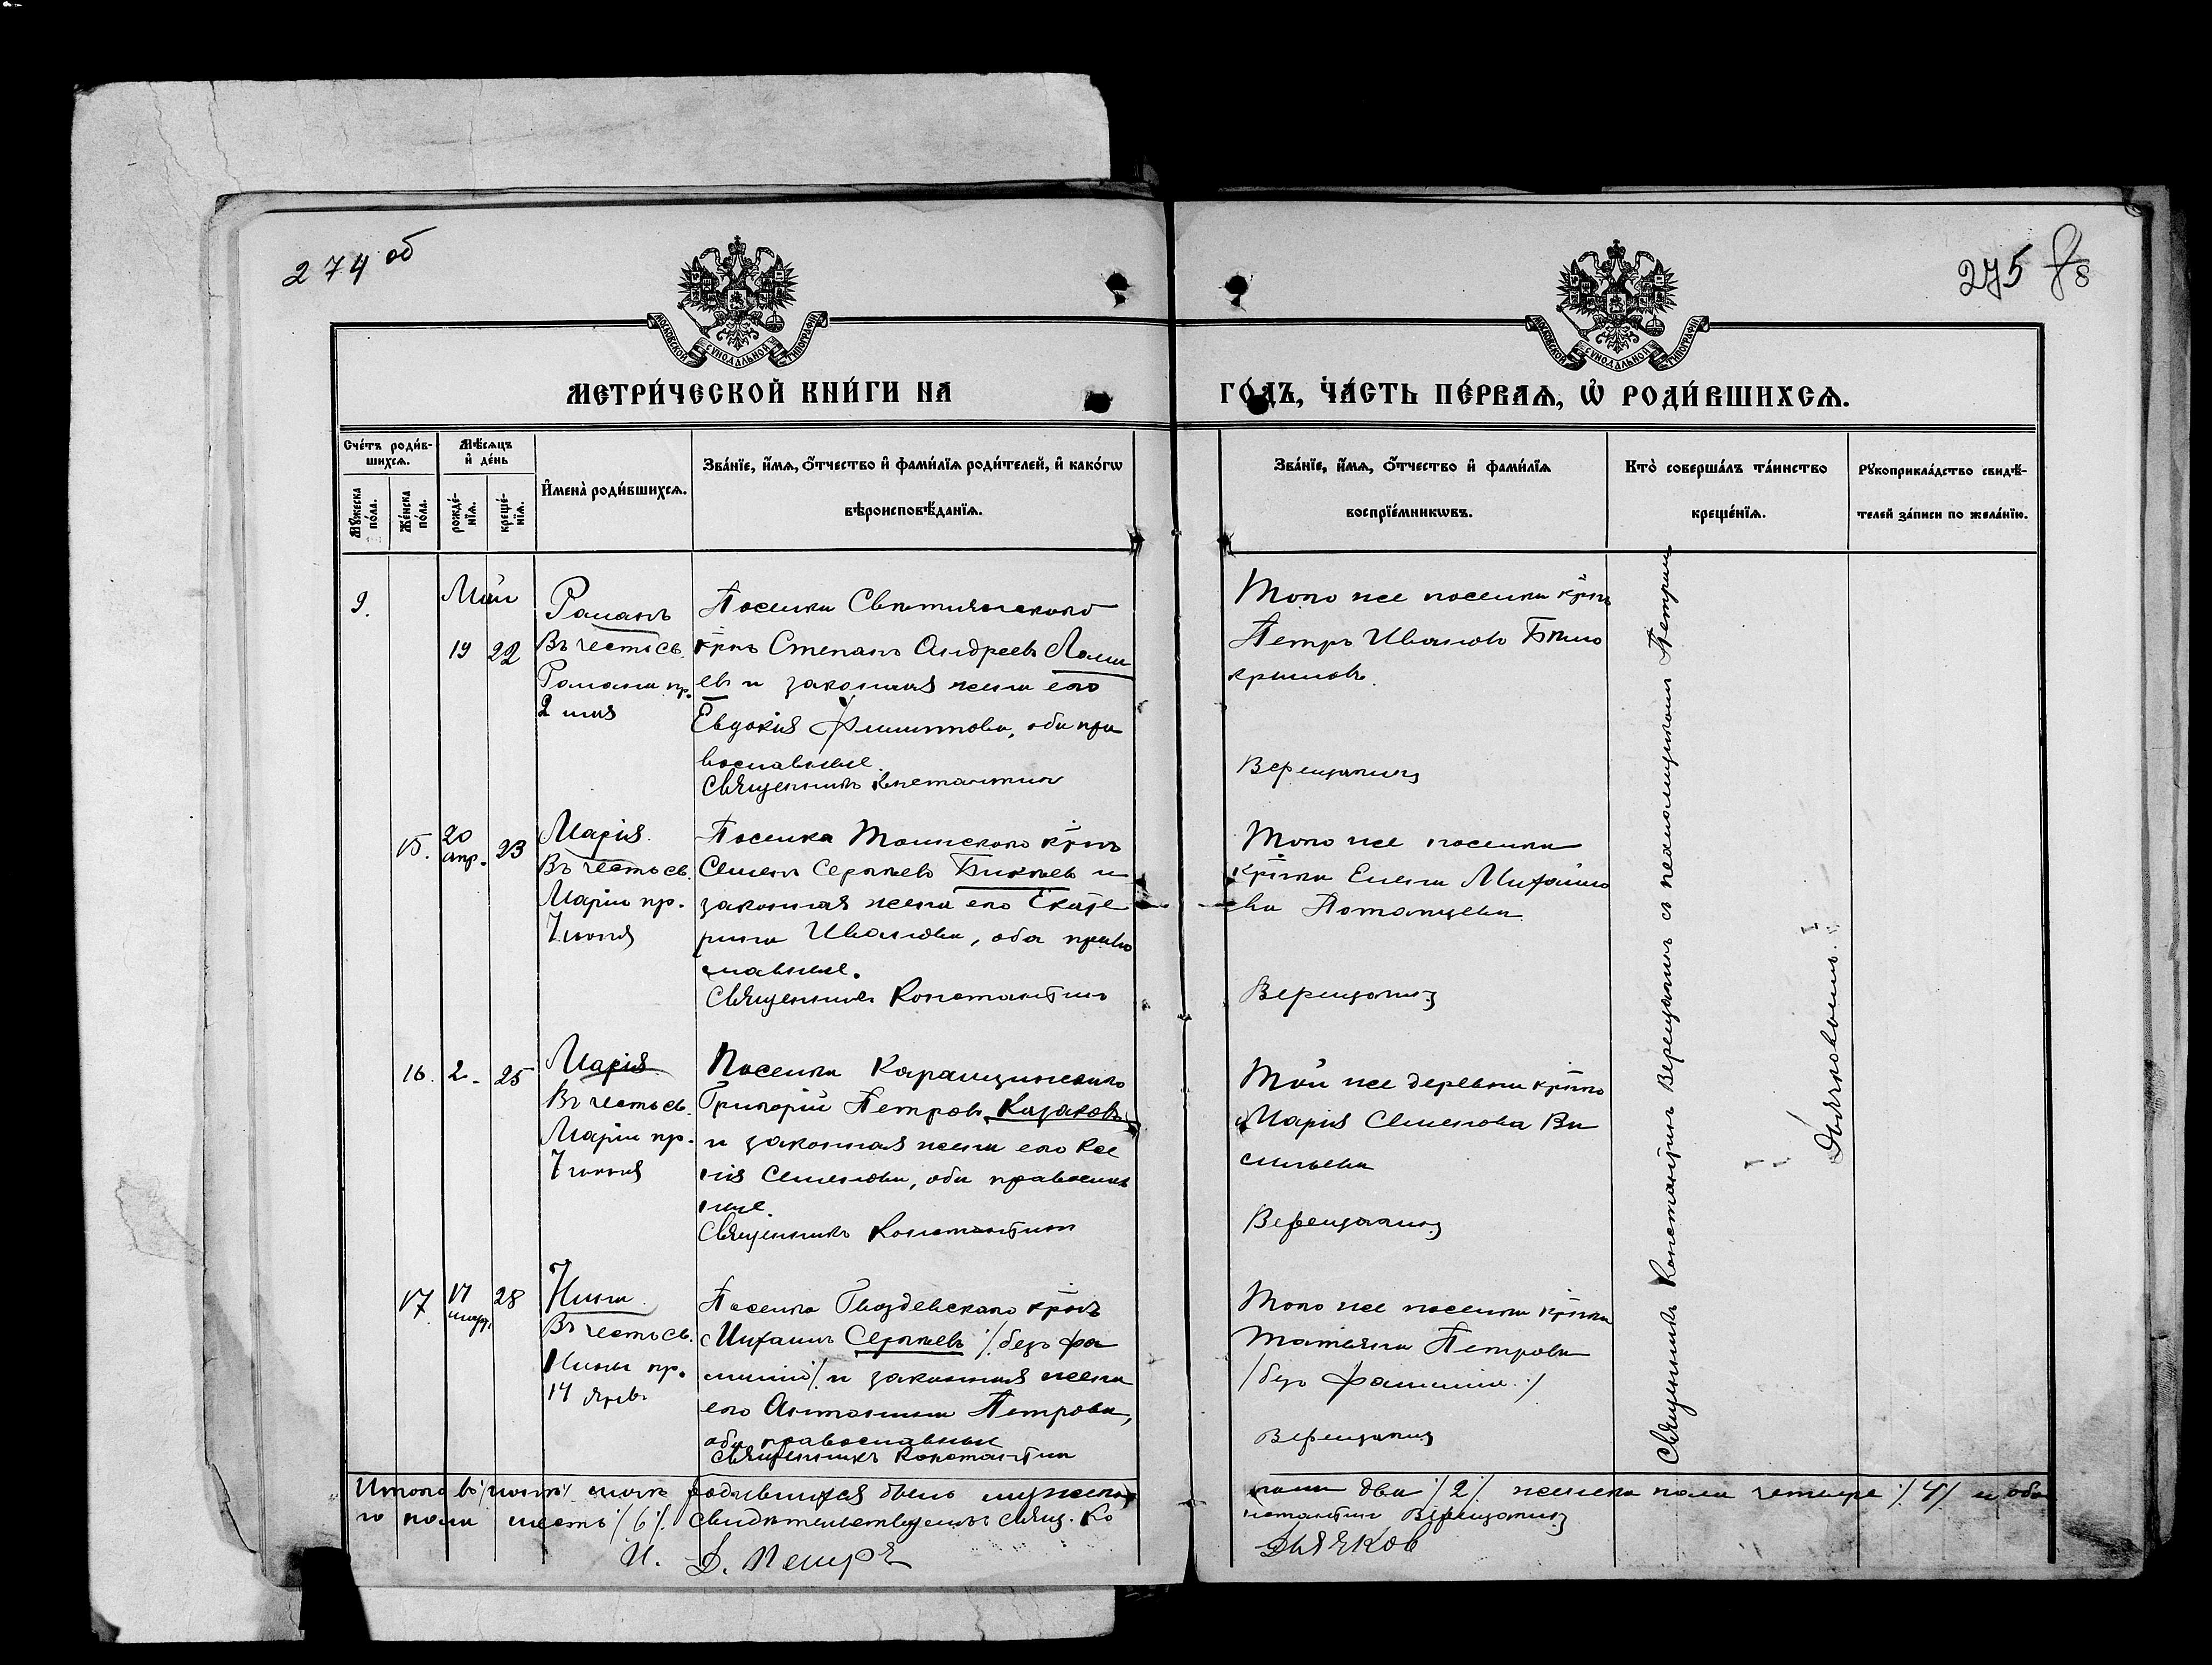 274 об
275
МОСКОВСКОЙ СѴНОДАЛЬНОЙ ТИПОГРАФІИ
МОСКОВСКОЙ СѴНОДАЛЬНОЙ ТИПОГРАФІИ
МЕТРИ́ЧЕСКОЙ КНИ́ГИ НА ГО́ДЪ, ЧА́СТЬ ПЕ́РВАѦ, Ѡ҆ РОДИ́ВШИХСѦ.
Сче́тъ роди́в-
шихсѧ.
Мꙋ́жеска по́ла.
Же́нска по́ла.
Мѣ́сѧцъ и҆ де́нь
рожде́-нїѧ.
креще́-нїѧ.
И҆мена̀ роди́вшихсѧ.
Зва́нїе, и҆́мѧ, ѻ҆́тчество и҆ фами́лїѧ роди́телей, и҆ како́гѡ
вѣроисповѣ́данїѧ.
Зва́нїе, и҆́мѧ, ѻ҆́тчество и҆ фами́лїѧ
воспрїе́мникѡвъ.
Кто̀ соверша́лъ та́инство
креще́нїѧ.
Рꙋкоприкла́дство свидѣ́-
телей за́писи по жела́нїю.
9.
Май
19 22
Романъ
Въ честь св.
Романа пр.
2 мая
Поселка
крнъ Степанъ Андреевъ
евъ и законная жена его
Евдокія Филиппова, оба пра
вославные.
Священникъ Константинъ
Того же поселка крнъ
Петръ Ивановъ Бѣло
крыловъ.
Верещагинъ
15. 20 апр. 23
Марія.
Въ честь св.
Маріи пр.
7 іюня
Поселка Томскаго крнъ
Семенъ Сергѣевъ и
законная жена его Екате
рина Иванова, оба право
славные.
Священникъ Константинъ
Того же поселка
крнка Елена Михайло
ва Потапцева
Верещагинъ
16. 2. 25
Марія
Въ честь св.
Маріи пр.
7 іюня
Поселка
Григорій Петровъ Казаковъ
и законная жена его Ксе
нія Семенова, оба православ
ные.
Священникъ Константинъ
Той же деревни крнка
Марія Семенова Ва
сильева
Верещагинъ
17. 17 март. 28
Нина
Въ честь св.
Нины пр.
14 янв.
Поселка Гвоздевскаго крнъ
Михаилъ Сергѣевъ /безъ фа
миліи/ и законная жена
его Антонина Петрова,
оба православные
Священникъ Константинъ
Того же поселка крнка
Татьяна Петрова
/безъ фамиліи./
Верещагинъ
Священникъ Константинъ Верещагинъ съ псаломщикомъ Петромъ
Дьячковымъ.
Итого въ маѣ мѣс. родившихся было мужска
го пола два /2/ женска пола четыре /4/ и обо
го пола шесть /6/. Свидѣтельствуемъ свящ. Ко
нстантин Верещагинъ
И. Д. Псмщ Дьячков